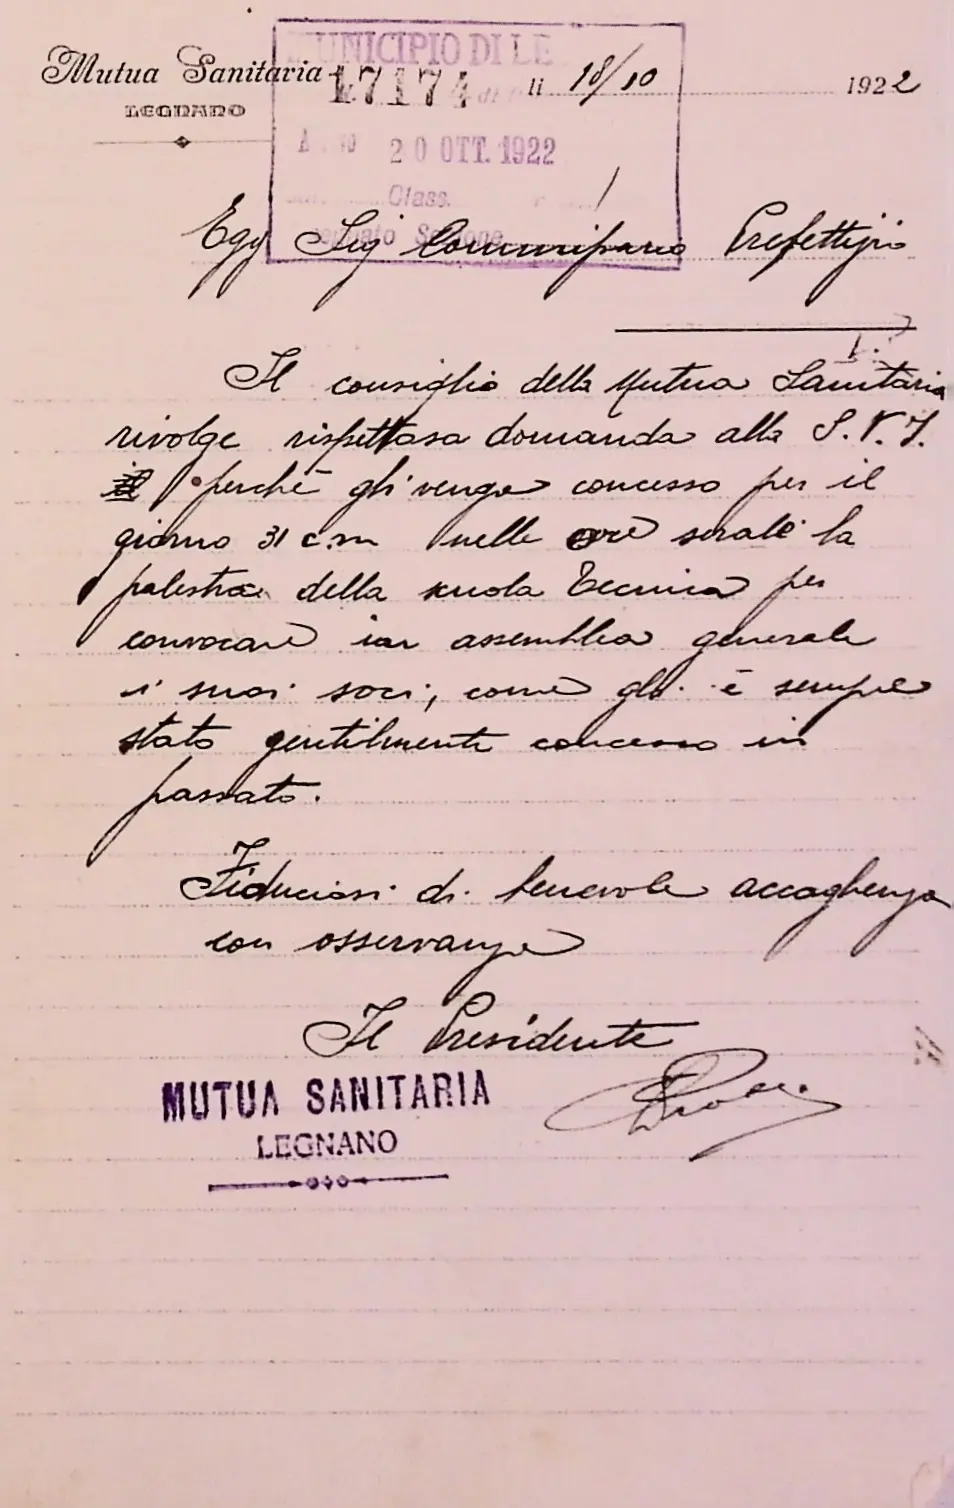 Mutua Sanitaria
LEGNANO
MUNICIPIO DI LE
17174
li 18/10 1922
20 OTT. 1922
Class.
Egr Sig Commissario Prefettizio
Il consiglio della Mutua Sanitaria
rivolge rispettosa domanda alla S.V.I.
perchè gli venga concesso per il
giorno 31 c.m nelle ore serali la
palestra della scuola Tecnica per
convocare in assemblea generale
i suoi soci, come gli è sempre
stato gentilmente concesso in
passato.
Fiduciosi di benevole accoglienza
con osservanza
Il Presidente
MUTUA SANITARIA
LEGNANO